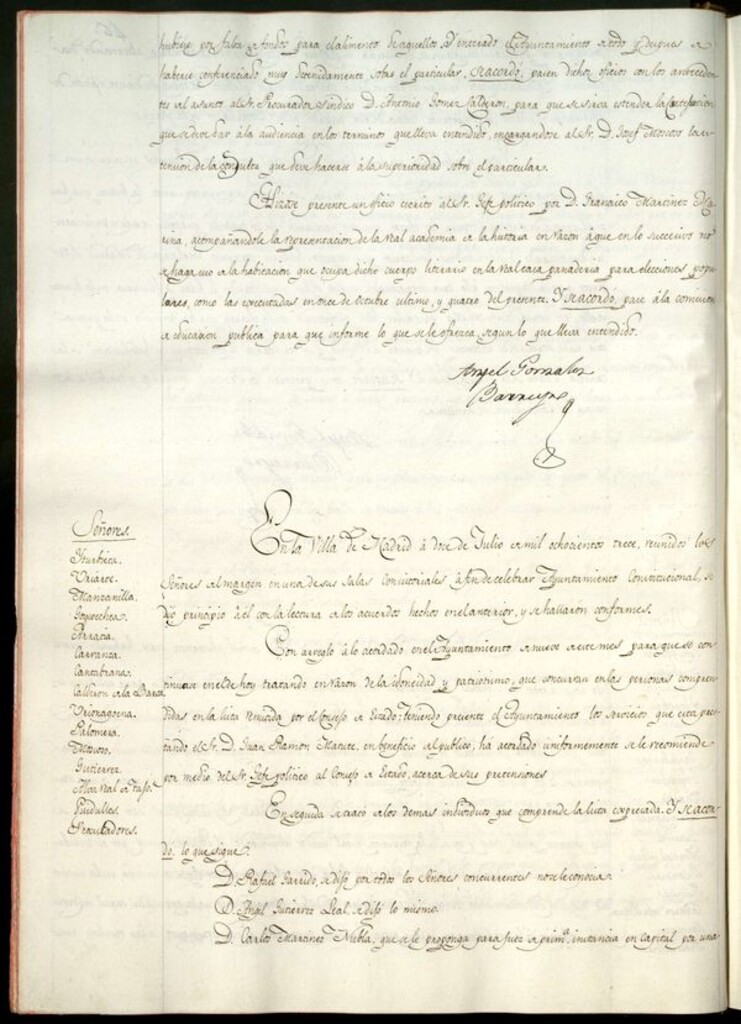 hubiese por falta de fondos para el alimento de aquellos. Y enterado el Ayuntamiento de todo y despues de
haberse conferenciado muy detenidamente sobre el particular, se acordó, pasen dichos oficios con los anteceden
tes al asunto al Sr. Procurador Sindico D. Antonio Gomez Calderon, para que se sirva estender la contestacion
que se deve dar á la audiencia en los terminos que lleva entendido, encargandose al Sr. D. Josef Moscoso la es
tension de la consulta que deve hacerse á la superioridad sobre el particular.
Hizose presente un oficio escrito al Sr. Gefe politico por D. Francisco Martinez Ma
rina, acompañandole la representacion de la real academia de la historia en razon á que en lo succesivo no
se haga uso de la habitacion que ocupa dicho cuerpo literario en la real casa panaderia para elecciones popu
lares, como las executadas en once de Octubre ultimo, y quatro del presente. Y se acordó, pase á la comision
de educacion publica para que informe lo que se le ofrezca, segun lo que lleva entendido.
Angel Gonzalez
Barreyro
Señores.
Yturbieta.
Uriarte.
Manzanilla.
Goyocchea.
Arratia.
Carranza.
Cantabrana.
Calderon de la Barca
Urionagoena.
Palomera.
Moscoso.
Gutierrez.
Mar Real de Tuso.
Guidulles.
Procuradores.
En la Villa de Madrid á doce de Julio de mil ochocientos trece, reunidos los
Señores del margen en una de sus salas Consistoriales á fin de celebrar Ayuntamiento Constitucional, se
dió principio á él con la lectura de los acuerdos hechos en el anterior, y se hallaron conformes.
Con arreglo á lo acordado en el Ayuntamiento de nueve de este mes para que se con
tinuase en el de hoy tratando en razon de la idoneidad y patriotismo, que concurran en las personas compren
didas en la lista remitida por el Consejo de Estado: teniendo presente el Ayuntamiento los servicios que esta pres
tando el Sr. D. Juan Ramon Matute, en beneficio del publico, há acordado uniformemente se le recomiende
por medio del Sr. Gefe politico al Consejo de Estado, acerca de sus pretensiones
En seguida se trató de los demas individuos que comprende la lista expresada. Y se acor
dó, lo que sigue.
D. Rafael Garrido, se dijo por todos los Señores concurrentes no se le conocia.
D. Angel Gutierrez Leal, se dijo lo mismo.
D. Carlos Martinez Niebla, que se le proponga para juez de prim.ª instancia en capital por una